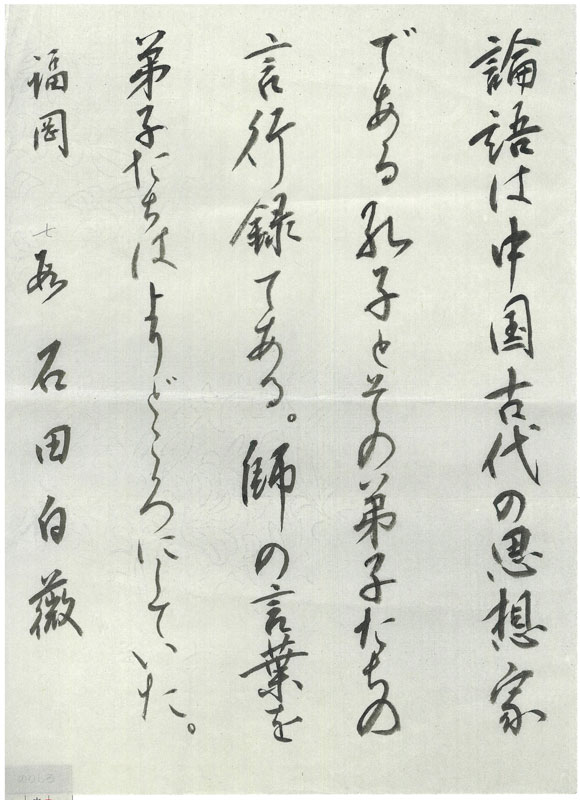 論語は中国古代の思想家
である孔子とその弟子たちの
言行録である。師の言葉を
弟子たちはよりどころにしていた。
福岡 七段 石田白薇
のりしろ